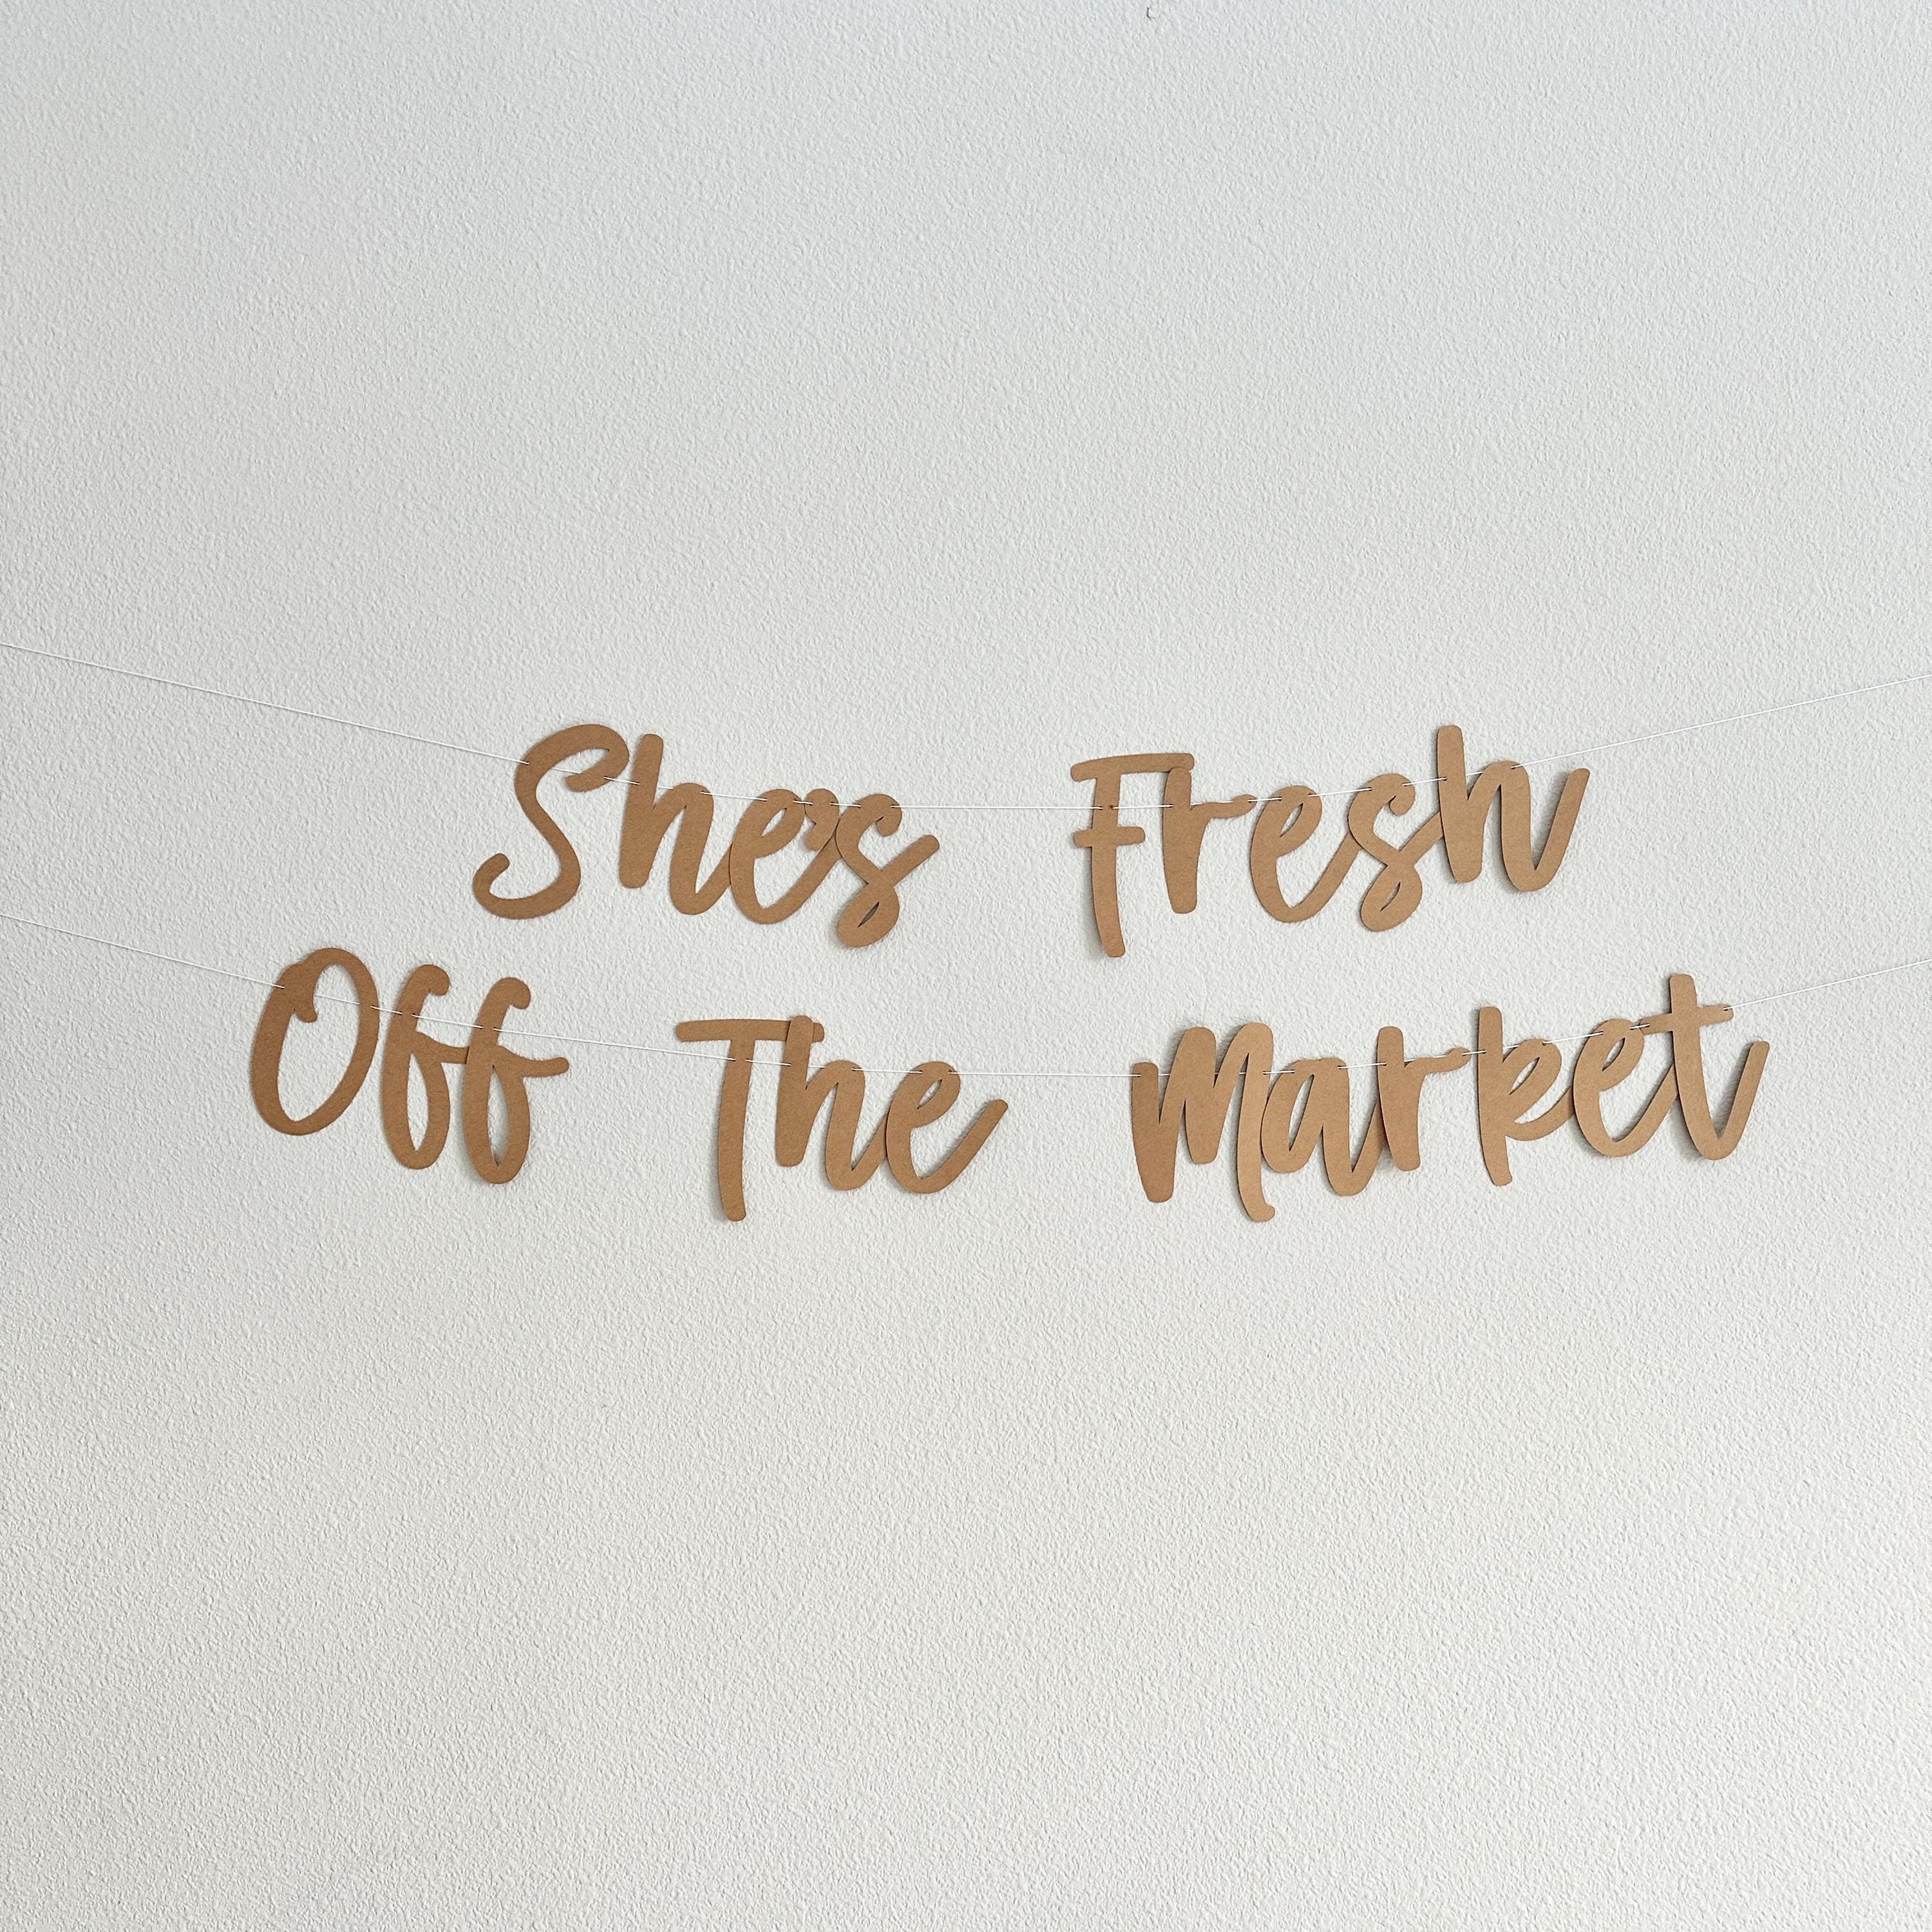 She's Fresh
Off The Market